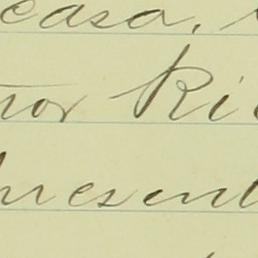 casa,
nor Ri
present